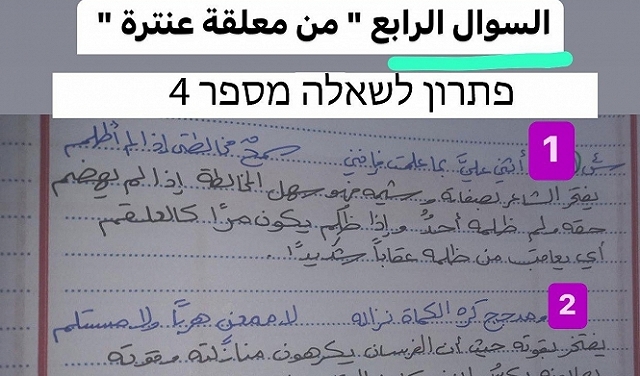 السوال الرابع " من معلقة عنترة "
פתרון לשאלה מספר 4
1
أثني عليَّ بما علمت فإنني سمحٌ مخالطتي إذا لم أظلم
يفتخر الشاعر بصفاته وشيمه فهو سهل المخالطة إذا لم يهضم
حقه ولم ظلمه أحدٌ وإذا ظُلِم يكون مرًّا كالعلقم
أي يعاقب من ظلمه عقاباً شديدًا .
2
ومدجج كره الكماة نزاله لا ممعنٍ هربًا ولا مستسلم
يفتخر بقوته حيث أن الفرسان يكرهون منازلته وقوته